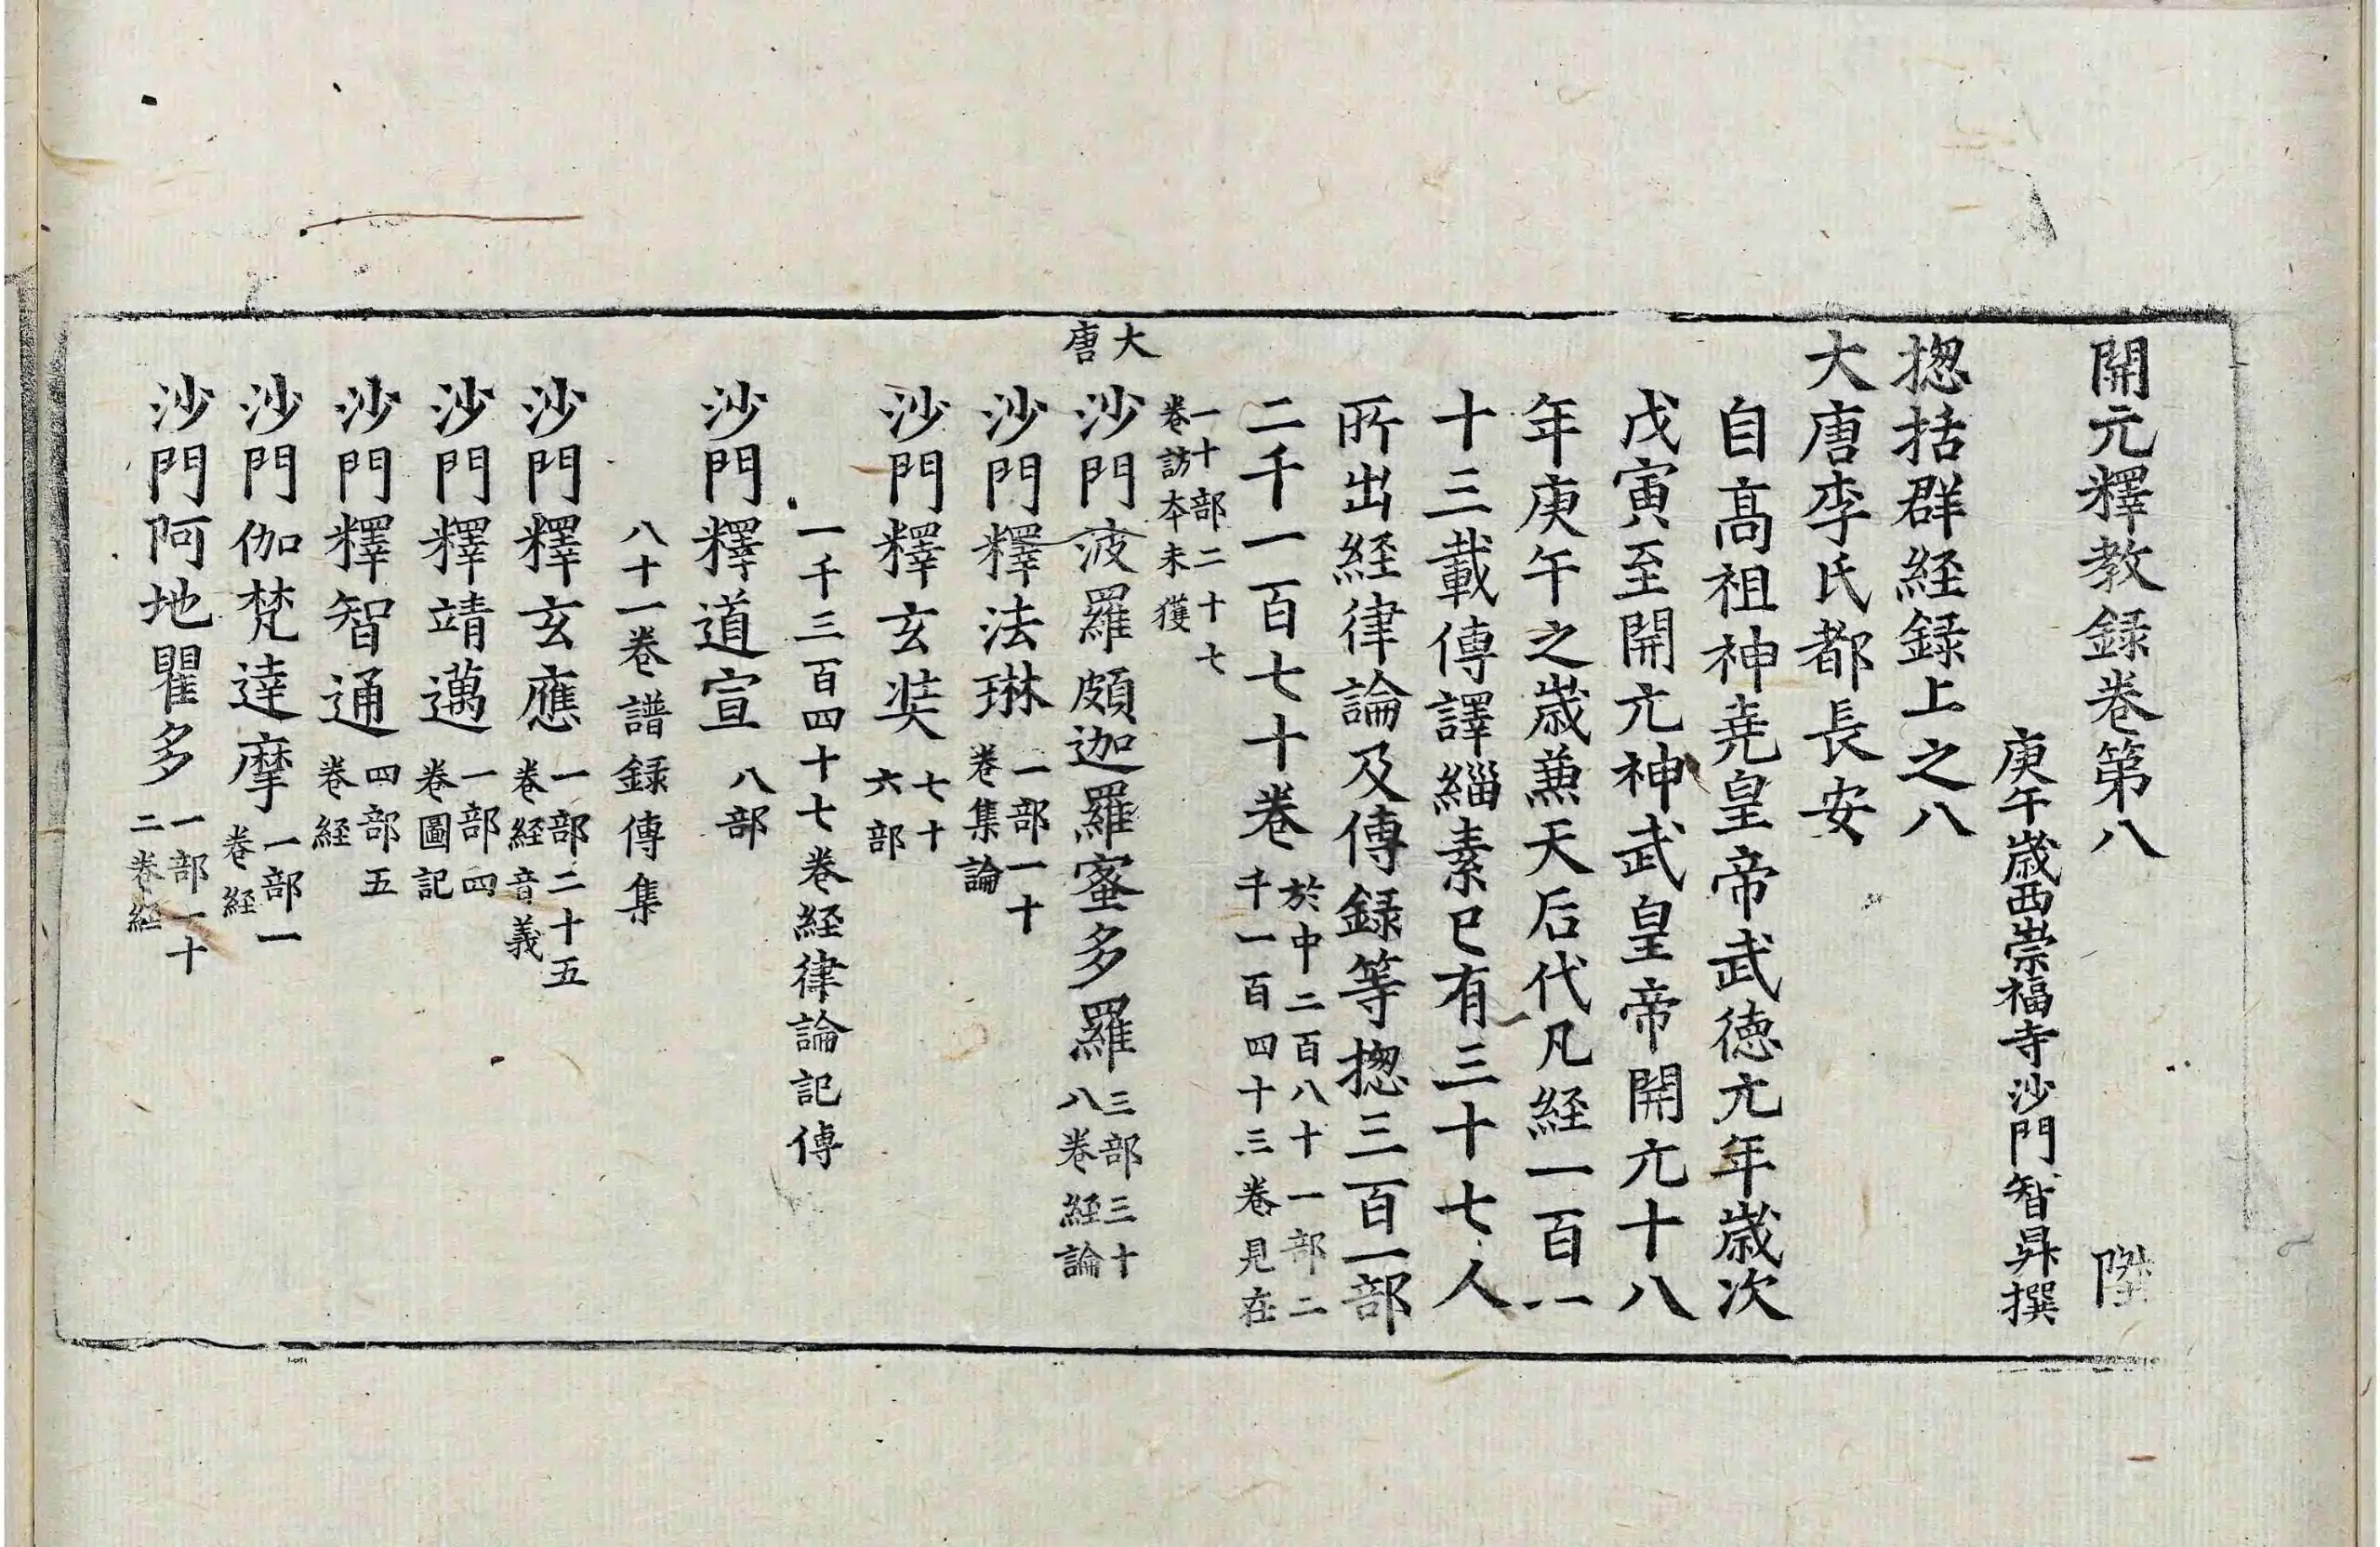 開元釋教録卷第八　陛
庚午歳西崇福寺沙門智昇撰
揔括群経録上之八
大唐李氏都長安
自髙祖神尭皇帝武徳元年歳次
戊寅至開元神武皇帝開元十八
年庚午之歳兼天后代凡経一百一
十三載傳譯緇素已有三十七人
所出経律論及傳録等揔三百一部
二千一百七十卷
於中二百八十一部二
千一百四十三卷見在
一十部二十七
卷訪本未獲
大唐
沙門波羅頗迦羅蜜多羅
三部三十
八卷経論
沙門釋法琳
一部一十
卷集論
沙門釋玄奘
七十
六部
一千三百四十七卷経律論記傳
沙門釋道宣八部
八十一卷譜録傳集
沙門釋玄應
一部二十五
卷経音義
沙門釋靖邁
一部四
卷圖記
沙門釋智通
四部五
卷経
沙門伽梵達摩
一部一
卷経
沙門阿地瞿多
一部一十
二卷経